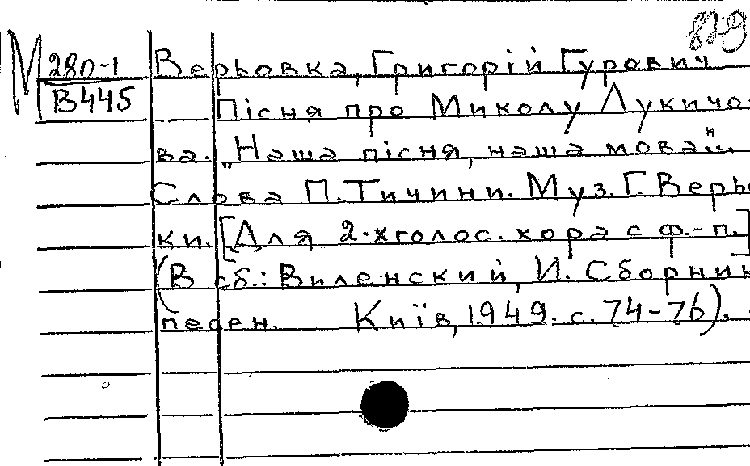 829
М 280-1 Верьовка, Григорій Гурович
В445 Пісня про Миколу Лукичо
ва. "Наша пісня, наша мова"..
Слова П. Тичини. Муз. Г. Верьо
ки. [Для 2-хголос. хора с ф.-п.]
(В сб.: Виленский, И. Сборник
песен. Київ, 1949. с. 74-76).